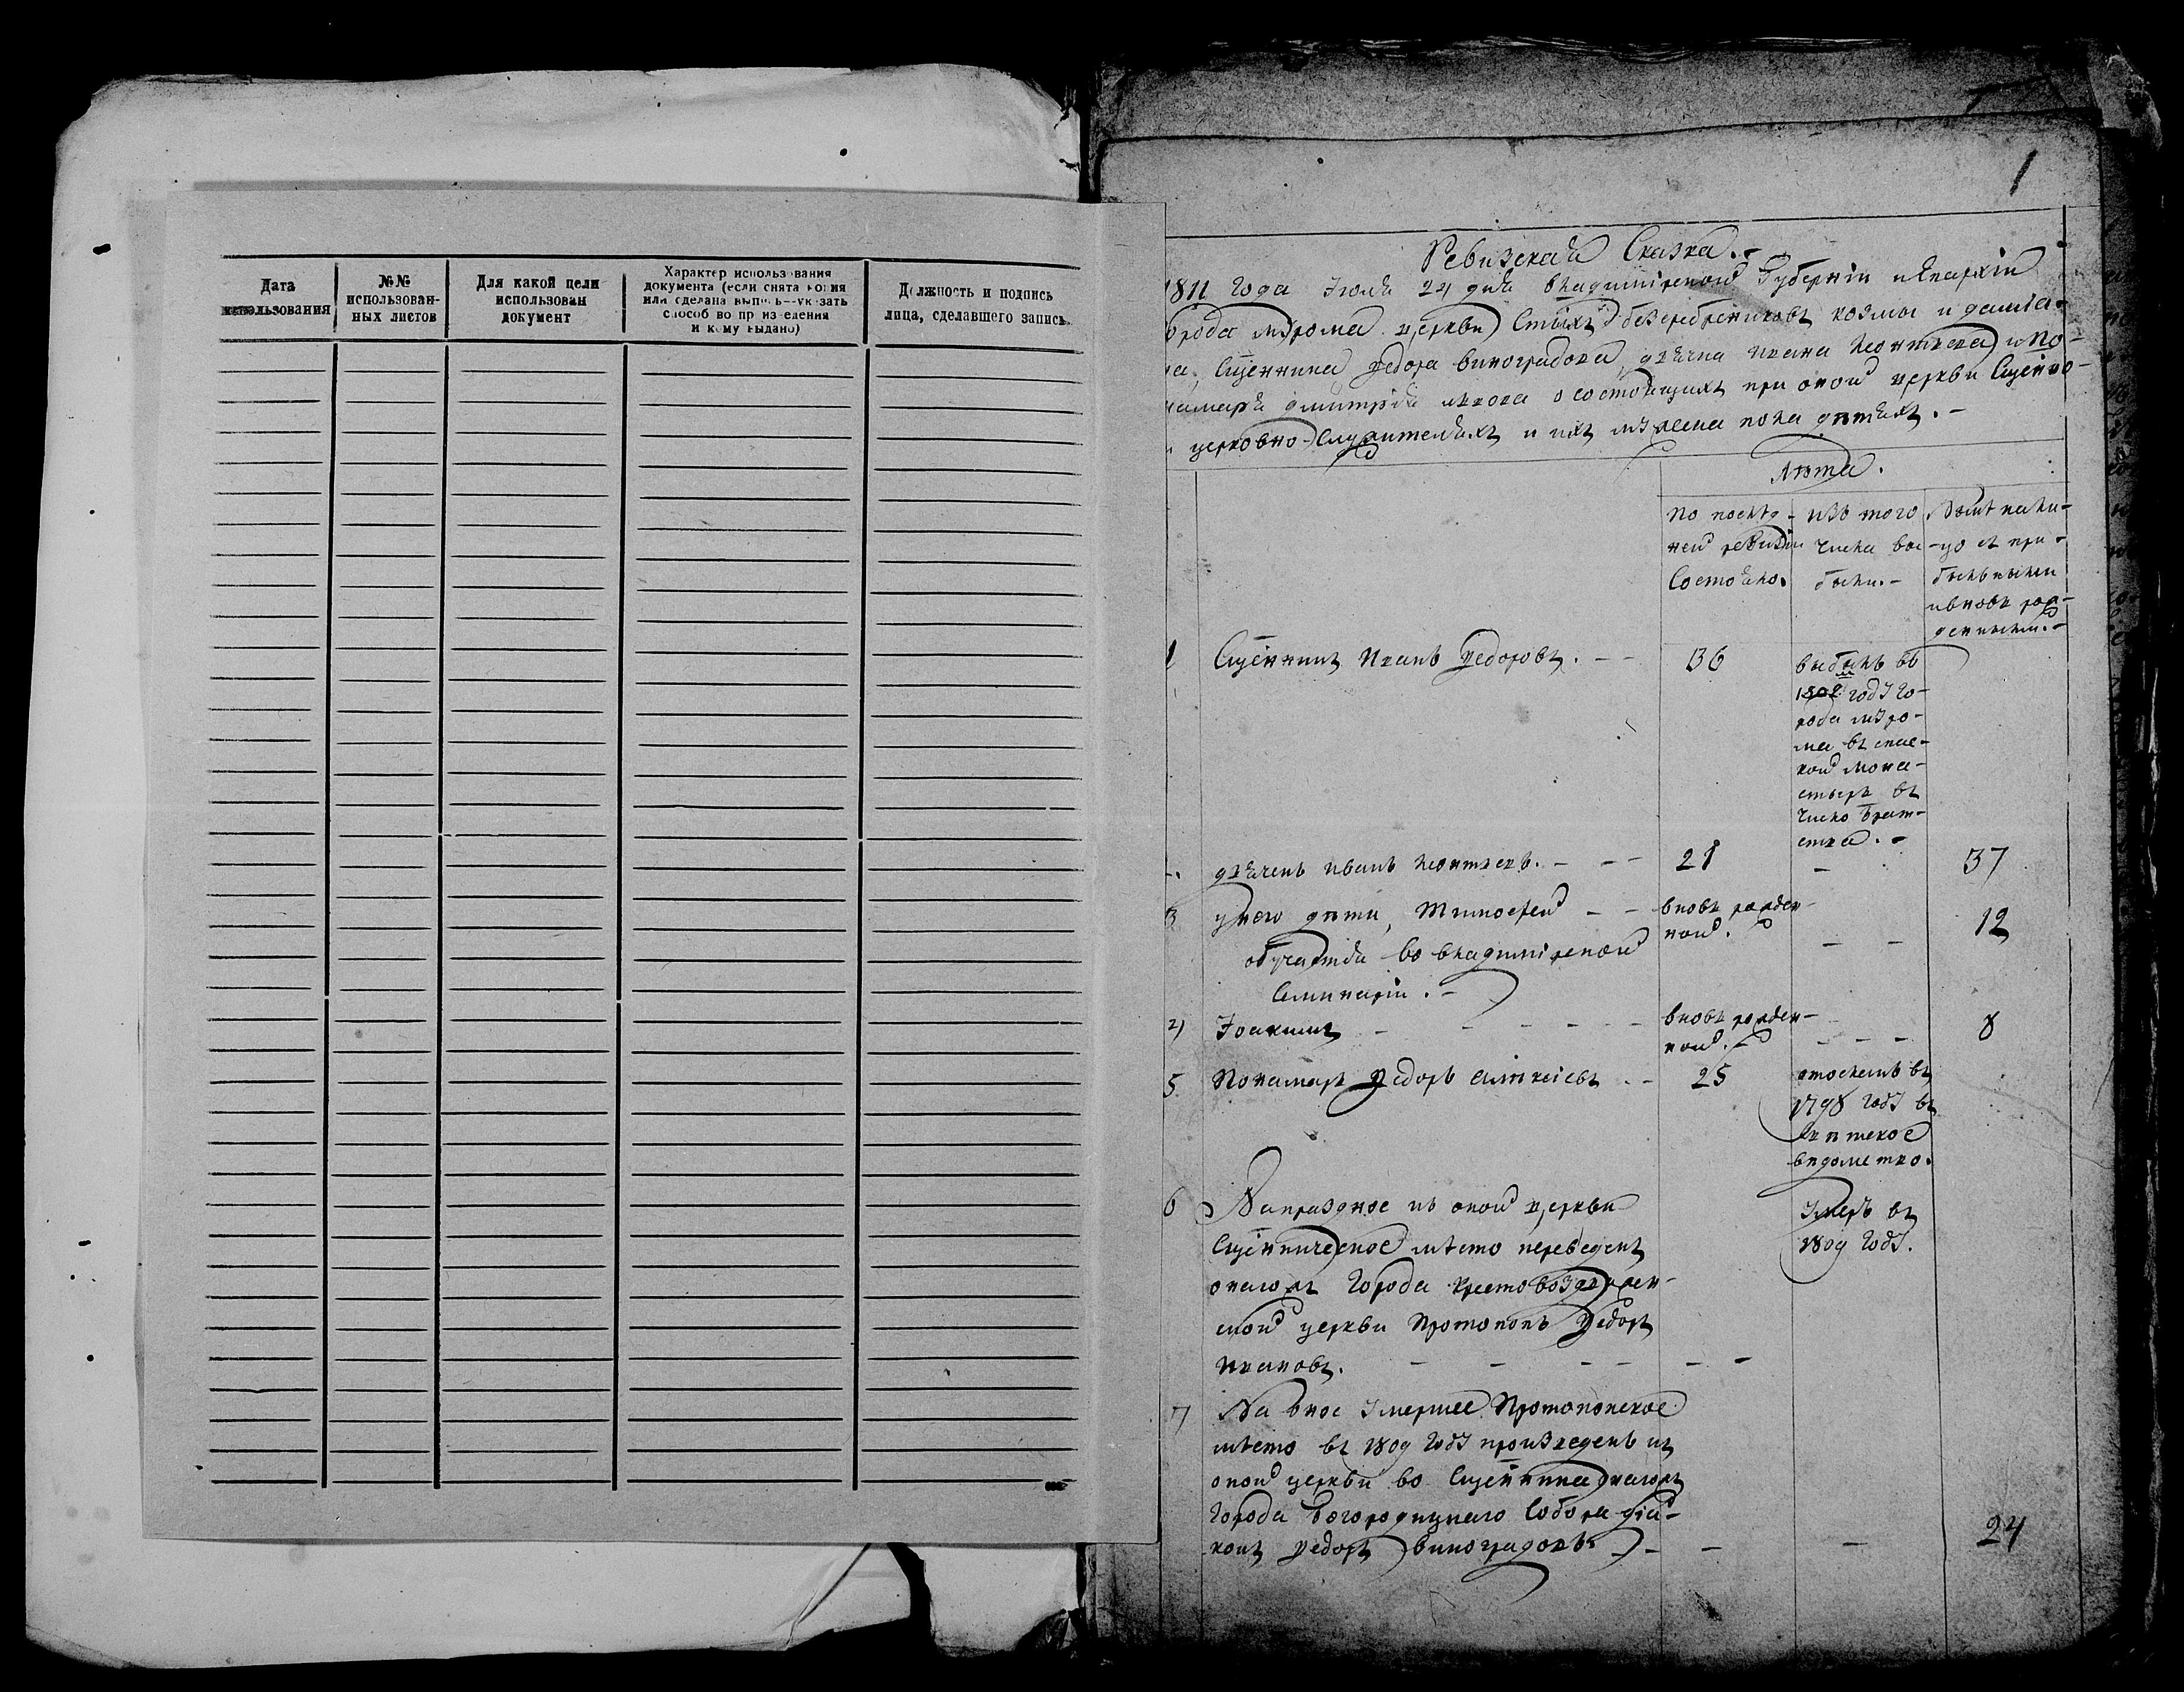 Дата
использования
№№
использован-
ных листов
Для какой цели
использован
документ
Характер использования
документа (если снята копия
или сделана выпись—указать
способ воспроизведения
и кому выдано)
Должность и подпись
лица, сделавшего запись
1
Ревизская Сказка.
1811 года Іюля 24 дня владимірской Губерніи и Епархіи
города мурома церкви Стыхъ безсребрениковъ козмы и даміа-
на, Сщенника Федора виноградова, дьячка ивана леонтьева и по-
намаря дмитрія о состоящихъ при оной церкви Сщенно-
и церковно-Служителяхъ и ихъ мужеска пола дѣтяхъ.
Лѣта.
По послѣд-
ней ревизіи
Состояло.
изъ того
числа вы-
были.
Нынѣ нали-
цо съ при-
былыми
и вновь рож-
денными.
1 Сщенникъ иванъ Федоровъ. 36
выбылъ въ
1802м году го-
рода муро-
ма въ спас-
кой мона-
стырь въ
число брат-
ства.
дьячекъ иванъ леонтьевъ. 21 37
3 у него дѣти, Тимофей вновь рожден-
ной. 12
обучается во владимірской
Семинаріи.
4 Іоакимъ вновь рожден-
ной. 8
5 Понамарь Федоръ алексіевъ 25
отосланъ въ
1798 году въ
свѣтское
вѣдомство.
6 На праздное въ оной церкви
Сщенническое мѣсто переведенъ
онагожъ города крестовоздвижен-
ской церкви протопопъ Федоръ
ивановъ.
умеръ въ
1809 году.
7 На оное умершее протопопское
мѣсто въ 1809 году произведенъ къ
оной церкви во Сщенника онагожъ
города Богородицкаго Собора діа-
конъ Федоръ виноградовъ 24